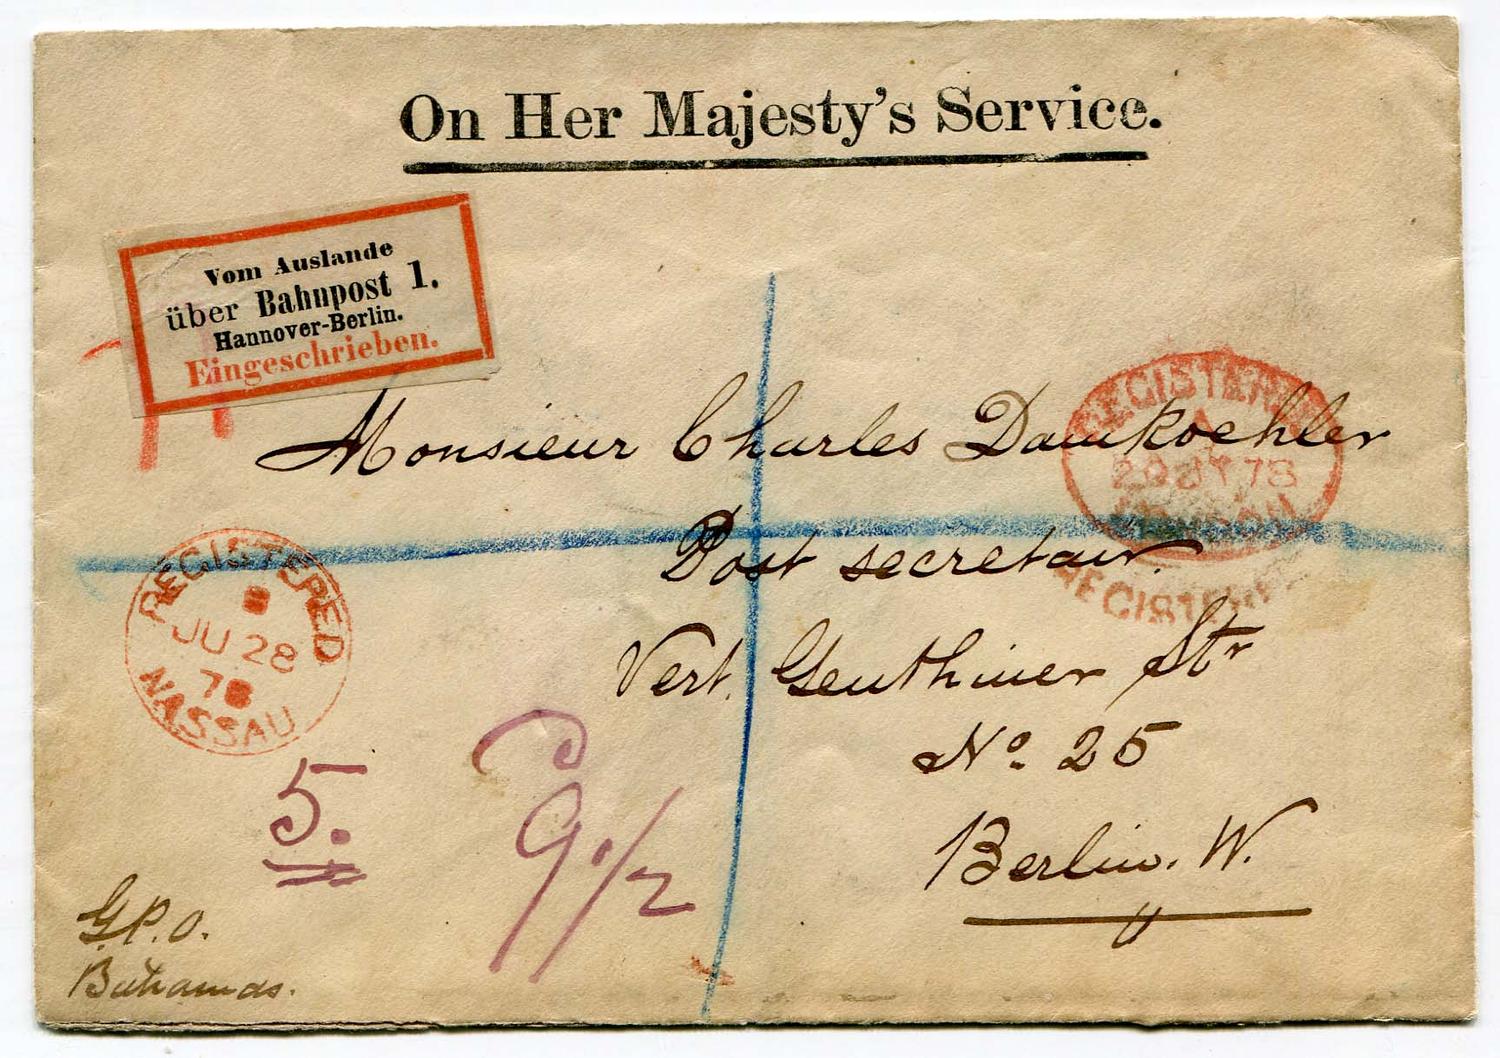 On Her Majesty's Service.
Vom Auslande
über Bahnpost 1.
Hannover-Berlin.
Eingeschrieben.
Monsieur Charles Damkoehler
Post secretair.
Vert. Genthiner Str
No. 25
Berlin. W.
REGISTERED
A
78
LONDON
REGISTERED
REGISTERED
8
JU 28
78
NASSAU
5.
9 1/2
G.P.O.
Bahamas.